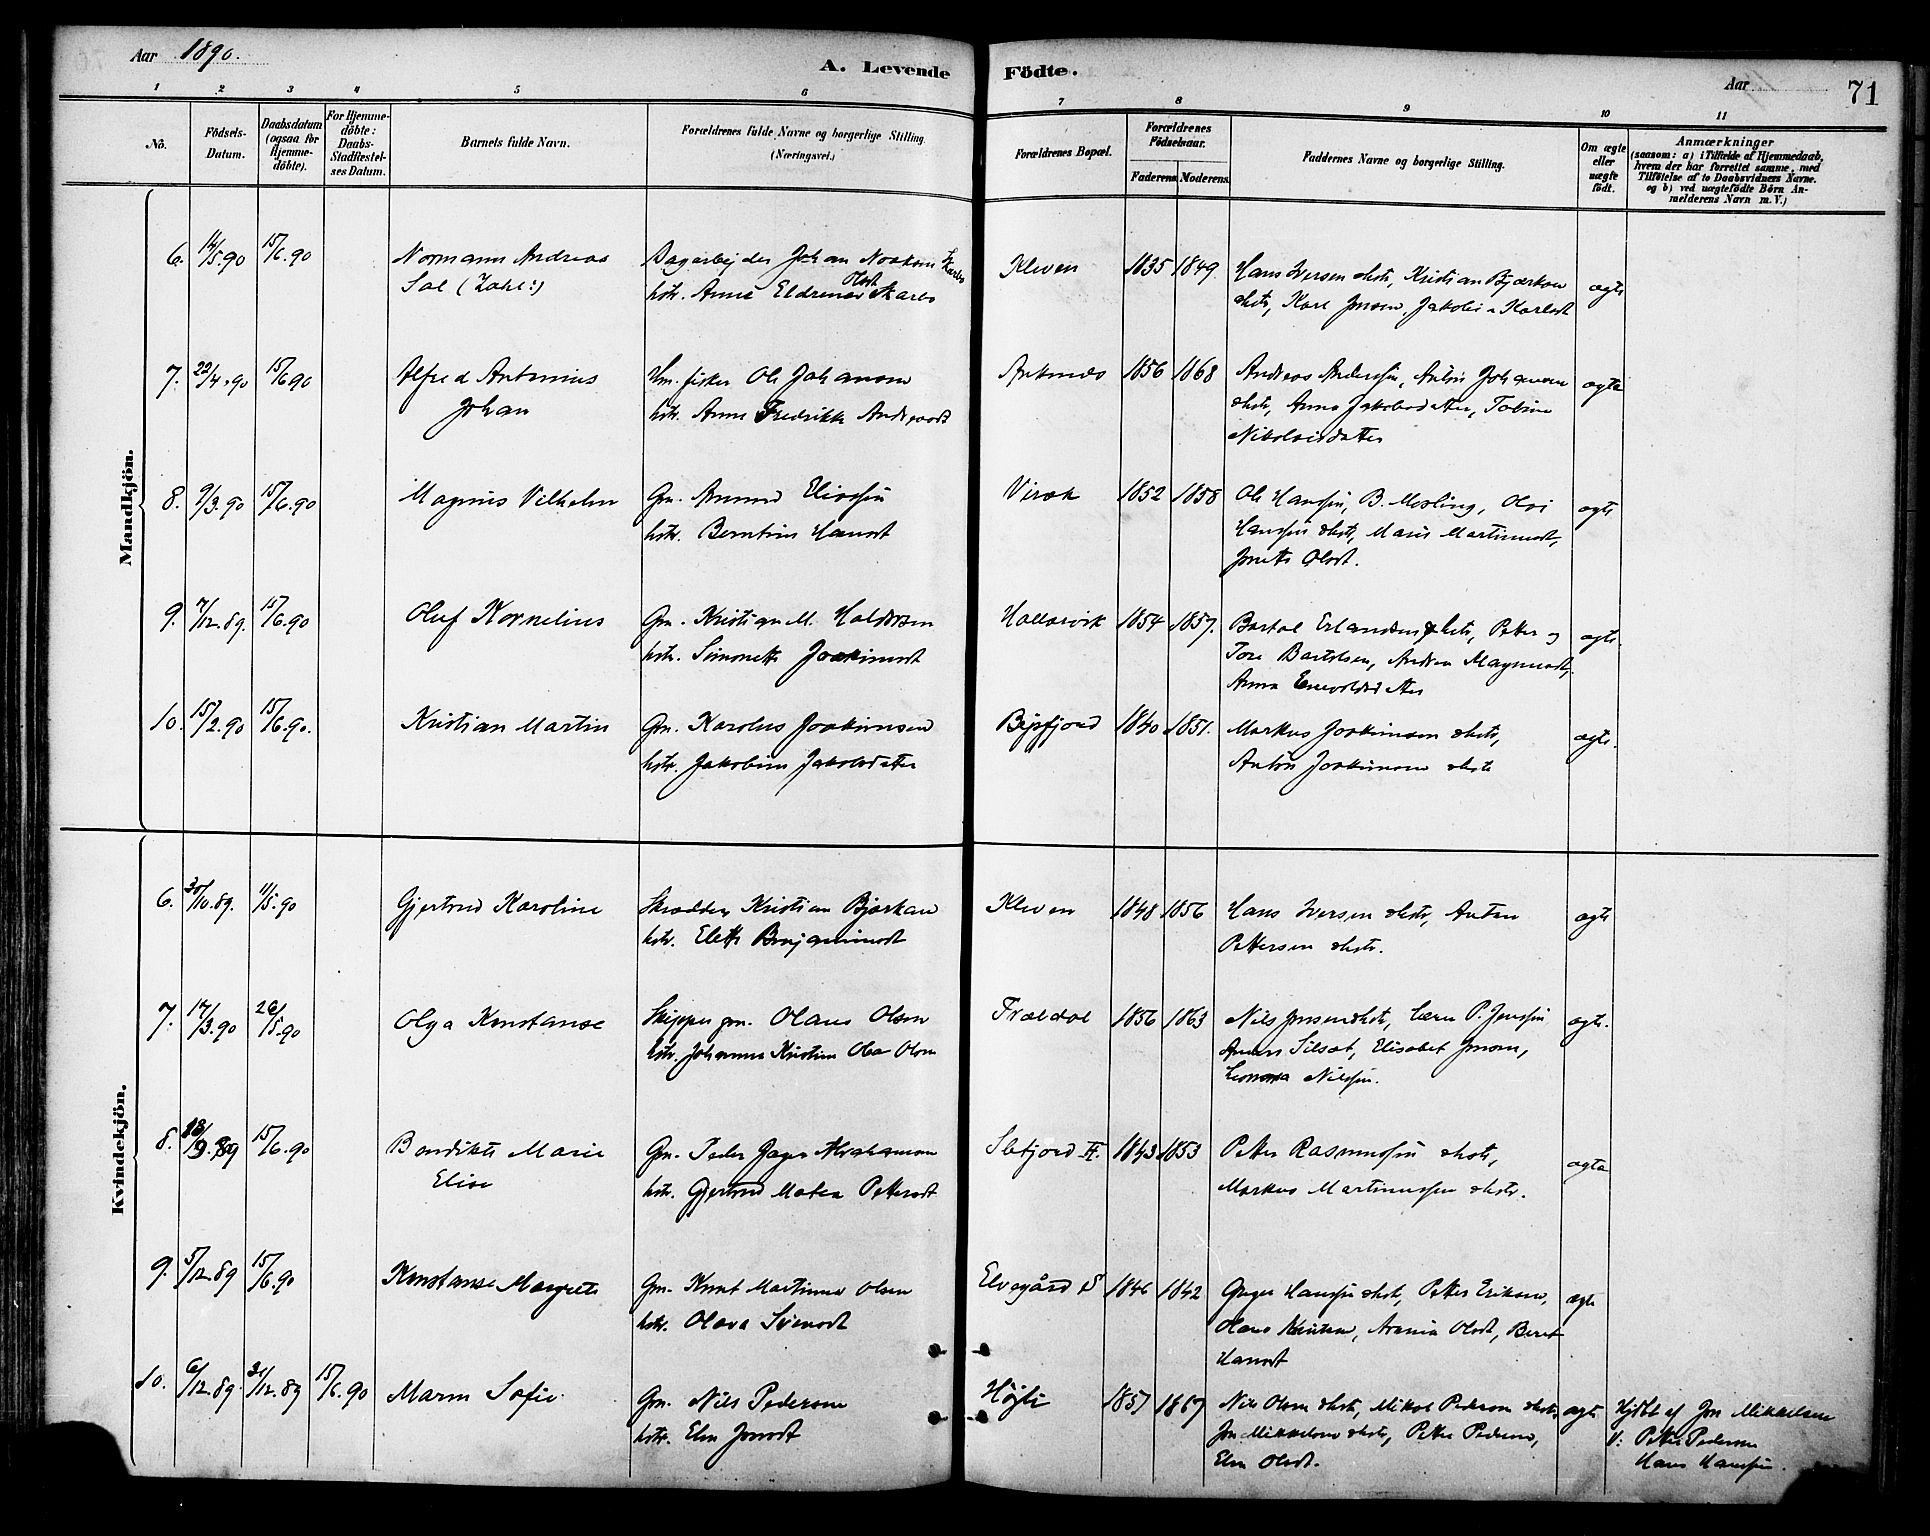 Aar 1890.
A. Levende Födte.
Aar
71
1 2 3 4 5 6 7 8 9 10 11
No.
Födsels-Datum.
Daabsdatum (ogsaa for Hjemme-döbte).
For Hjemme-döbte: Daabs-Stadfæstel-ses Datum.
Barnets fulde Navn.
Forældrenes fulde Navne og borgerlige Stilling.
(Næringsvei.)
Forældrenes Bopæl.
Forældrenes Födselsaar.
Faderens. Moderens.
Faddernes Navne og borgerlige Stilling.
Om ægte eller uægte födt.
Anmærkninger
(saasom: a) i Tilfælde af Hjemmedaab,
hvem der har forrettet samme, med
Tilföielse af to Daabsvidners Navne.
og b) ved uægtefödte Börn An-
melderens Navn m. V.)
Mandkjön.
6. 14/5.90 15/6.90 Normann Andreas
Sal (Zahl:)
Dagarbejder Johan
hstr. Anna Olsdt Skarbo
Kleven 1835 1849.
Hans Iversen &hstr, Kristian Bjørkan
&hstr, Karl Jensen, Karlsdt
ægte
7. 22/4.90 15/6.90 Alfred Antonius
Johan
fisker Ole Johansen
hstr. Anna Fredrikke
Ankenes 1856 1868
Andreas Anderssen, Anton Johansen
&hstr, Anna Jakobsdatter, Tobine
Nikolaisdatter
ægte
8. 9/3.90 15/6.90 Magnus Vilhelm
Gm. Amund Eliassen
hstr. Berntine Hansdt
Virak 1852 1858
Ole Hanssen, B. Mosling,
Hanssen &hstr, Marie Martinusdt,
Olsdt.
ægte
9. 7/12.89. 15/6.90 Oluf Kornelius
Gm. Kristian M. Haldorsen
hstr. Simonette Joakimsdt
Hallarvik 1854 1857.
Bartol Erlandsen &hstr, Peter og
Tore Bartolsen, Andrea Magnusdt,
Anna Enevoldsdatter
ægte.
10. 15/2.90 15/6.90. Kristian Martin
Gm. Karolus Joakimsen
hstr. Jakobine Jakobsdatter
1840 1851.
Markus Joakimsen &hstr,
Anton Joakimsen &hstr
ægte.
Kvindekjön.
6. 30/10.89. 11/5.90 Gjertrud Karoline
Skrædder Kristian Bjørkan
hstr. Elette Benjaminsdt
Kleven 1848 1856
Hans Iversen &hstr, Anton
Pettersen &hstr.
ægte
7. 17/3.90 26/5.90 Olga Konstanse
Skipper gm. Olaus Olsen
hstr. Johanna Kristine Olsen
Frældal 1856 1863
Nils Jensen &hstr, P. Jenssen
Silset, Elisabet Jensen,
Nilssen.
ægte.
8. 15/6.90 Bendikte Marie
Elise
Gm. Peder Jæger Abrahamsen
hstr. Gjertrud Matea Pettersdt
1843 1853
Petter Rasmussen &hstr,
Markus Martinussen &hstr.
ægte
9. 5/12.89 15/6.90 Konstanse Margrete
Gm. Knut Martinus Olsen
hstr. Olava Svensdt
Elvegård S 1846 1842
Hanssen &hstr, Petter Eriksen,
Olaus Knutsen, Olsdt, Beret
Hansdt
ægte
10. 6/12.89. 31/12.89 15/6.90 Maren Sofie.
Gm. Nils Pedersen
hstr. Elen Jonsdt
Højli 1857 1867
Nils Olsen &hstr, Mikal Pedersen &hstr,
Jon Mikkelsen &hstr, Petter Pedersen,
Elen Olsdt.
ægte
Hjdbt af Jon Mikkelsen
V: Petter Pedersen
Hans Hanssen.